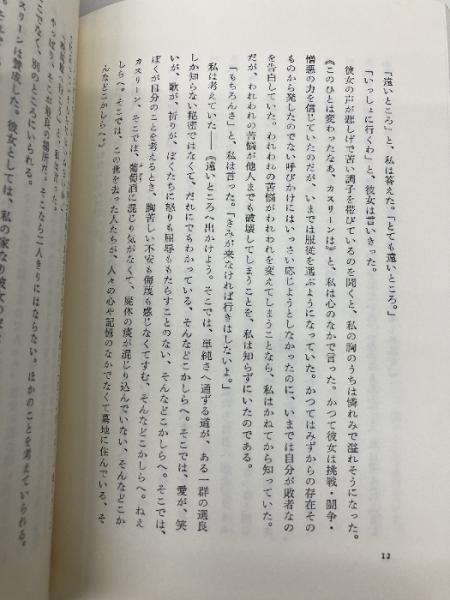 「遠いところ」と、私は答えた。「とても遠いところ。」
「いっしょに行くわ」と、彼女は言いきった。
彼女の声が悲しげで苦い調子を帯びているのを聞くと、私の胸のうちは憐れみで溢れそうになった。
《このひとは変わったなあ、カスリーンは》と、私は心のなかで言った。かつて彼女は挑戦・闘争・
憎悪の力を信じていたのだが、いまでは服従を選ぶようになっていた。かつてはみずからの存在その
ものから発したのでない呼びかけにはいっさい応じようとしなかったのに、いまでは自分が敗者なの
を告白していた。われわれの苦悩がわれわれを変えてしまうことなら、私はかねてから知っていた。
だが、われわれの苦悩が他人までも破壊してしまうことを、私は知らずにいたのである。
「もちろんさ」と、私は言った。「きみが来なければ行きはしないよ。」
私は考えていた――《遠いところへ出かけよう。そこでは、単純さへ通ずる道が、ある一群の選良
しか知らない秘密ではなくて、だれにでもわかっている、そんなどこかしらへ。そこでは、愛が、笑
いが、歌が、祈りが、ぼくたちに怒りも屈辱ももたらすことのない、そんなどこかしらへ。そこでは、
ぼくが自分のことを考えるとき、胸苦しい不安も侮蔑も感じなくてすむ、そんなどこかしらへ。ねえ
カスリーン、そこでは、葡萄酒に混じり気がなくて、屍体の痰が混じり込んでいない、そんなどこか
しらへ。そこでは、この世を去った人たちが、人々の心や記憶のなかでなくて墓地に住んでいる、そ
んなどこかしらへ。》
12
やっぱり、ここが最良の場所だ。
ここでなく、別のところにいられる。そこなら二人きりにはならない。ほかのことを考えていられる。
カスリーンは賛成した。彼女としては、私の家なり彼女の